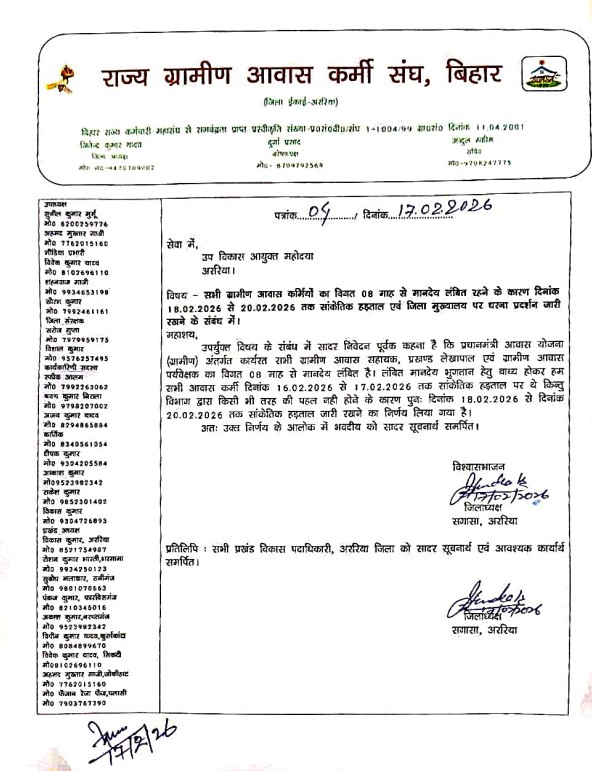 राज्य ग्रामीण आवास कर्मी संघ, बिहार
(जिला ईकाई-अररिया)
बिहार राज्य कर्मचारी महासंघ से सम्बद्धता प्राप्त प्रस्वीकृति संख्या-प्र०सं०वी०/संघ 1-1004/99 सा०सं० दिनांक 11.04.2001
जितेन्द्र कुमार यादव
जिला अध्यक्ष
दुर्गा प्रसाद
कोषाध्यक्ष
मो०- 8709792569
अब्दुल रहीम
सचिव
मो०-9708247775
पत्रांक 04 / दिनांक 17.02.2026
सेवा में,
उप विकास आयुक्त महोदया
अररिया।
विषय - सभी ग्रामीण आवास कर्मियों का विगत 08 माह से मानदेय लंबित रहने के कारण दिनांक
18.02.2026 से 20.02.2026 तक सांकेतिक हड़ताल एवं जिला मुख्यालय पर धरना प्रदर्शन जारी
रखने के संबंध में।
महाशय,
उपर्युक्त विषय के संबंध में सादर निवेदन पूर्वक कहना है कि प्रधानमंत्री आवास योजना
(ग्रामीण) अंतर्गत कार्यरत सभी ग्रामीण आवास सहायक, प्रखण्ड लेखापाल एवं ग्रामीण आवास
पर्यवेक्षक का विगत 08 माह से मानदेय लंबित है। लंबित मानदेय भुगतान हेतु बाध्य होकर हम
सभी आवास कर्मी दिनांक 16.02.2026 से 17.02.2026 तक सांकेतिक हड़ताल पर थे किन्तु
विभाग द्वारा किसी भी तरह की पहल नही होने के कारण पुनः दिनांक 18.02.2026 से दिनांक
20.02.2026 तक सांकेतिक हड़ताल जारी रखने का निर्णय लिया गया है।
अतः उक्त निर्णय के आलोक में भवदीय को सादर सूचनार्थ समर्पित।
विश्वासभाजन
17/02/2026
जिलाध्यक्ष
सगासा, अररिया
प्रतिलिपि : सभी प्रखंड विकास पदाधिकारी, अररिया जिला को सादर सूचनार्थ एवं आवश्यक कार्यार्थ
समर्पित।
17/02/2026
जिलाध्यक्ष
सगासा, अररिया
उपाध्यक्ष
सुनील कुमार मुर्मू
मो० 6200259776
अहमद मुख्तार गाजी
मो० 7762015160
मीडिया प्रभारी
विवेक कुमार यादव
मो० 8102696110
शहनवाज गाजी
मो० 9934653198
सौरभ कुमार
मो० 7992461161
जिला संरक्षक
सरोज गुप्ता
मो० 7979959175
विशाल कुमार
मो० 9576257495
कार्यकारिणी सदस्य
रफीक आलम
मो० 7992263062
श्रवण कुमार निराला
मो० 9798207002
अजय कुमार यादव
मो० 8294865884
कार्तिक
मो० 8340561054
दीपक कुमार
मो० 9304205584
आकाश कुमार
मो०9523982342
राकेश कुमार
मो० 9852301402
विकास कुमार
मो० 9304726893
प्रखंड अध्यक्ष
विकास कुमार, अररिया
मो० 8521754987
रौशन कुमार भारती,भरगामा
मो० 9934250123
सुबोध मलाकार, रानीगंज
मो० 9801070663
पंकज कुमार, फारबिसगंज
मो० 8210346016
अकाश कुमार,नरपतगंज
मो० 9523982342
विपीन कुमार यादव,कुर्साकांटा
मो० 8084899670
विवेक कुमार यादव, सिकटी
मो०8102696110
अहमद मुख्तार गाजी,जोकीहाट
मो० 7762015160
मो० फैजान रेजा फैज,पलासी
मो० 7903767390
17/2/26